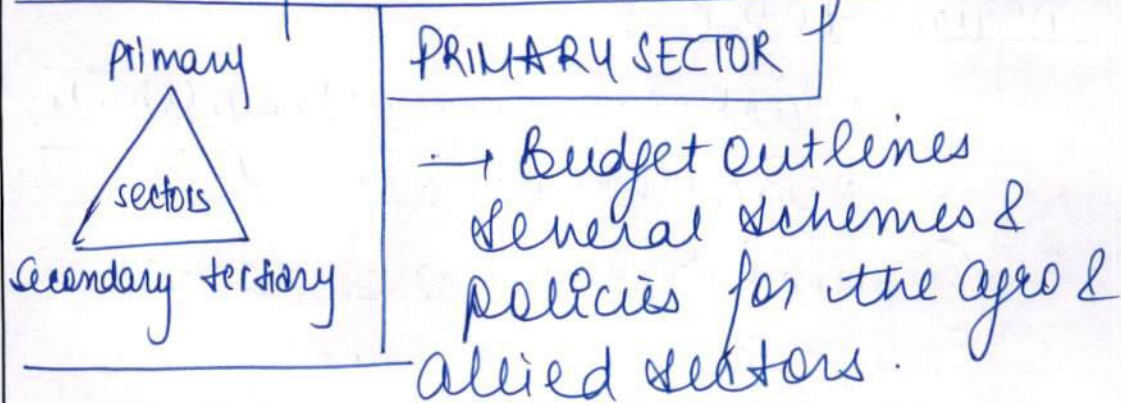 primary
sectors
secondary tertiary
PRIMARY SECTOR
→ Budget outlines
several schemes &
policies for the agro &
allied sectors.